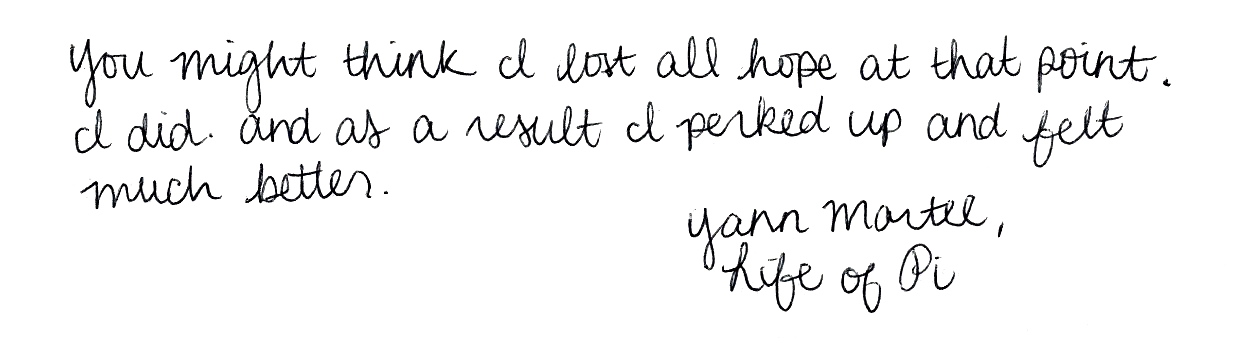 You might think I lost all hope at that point.
I did. And as a result I perked up and felt
much better.
Yann Martel,
Life of Pi